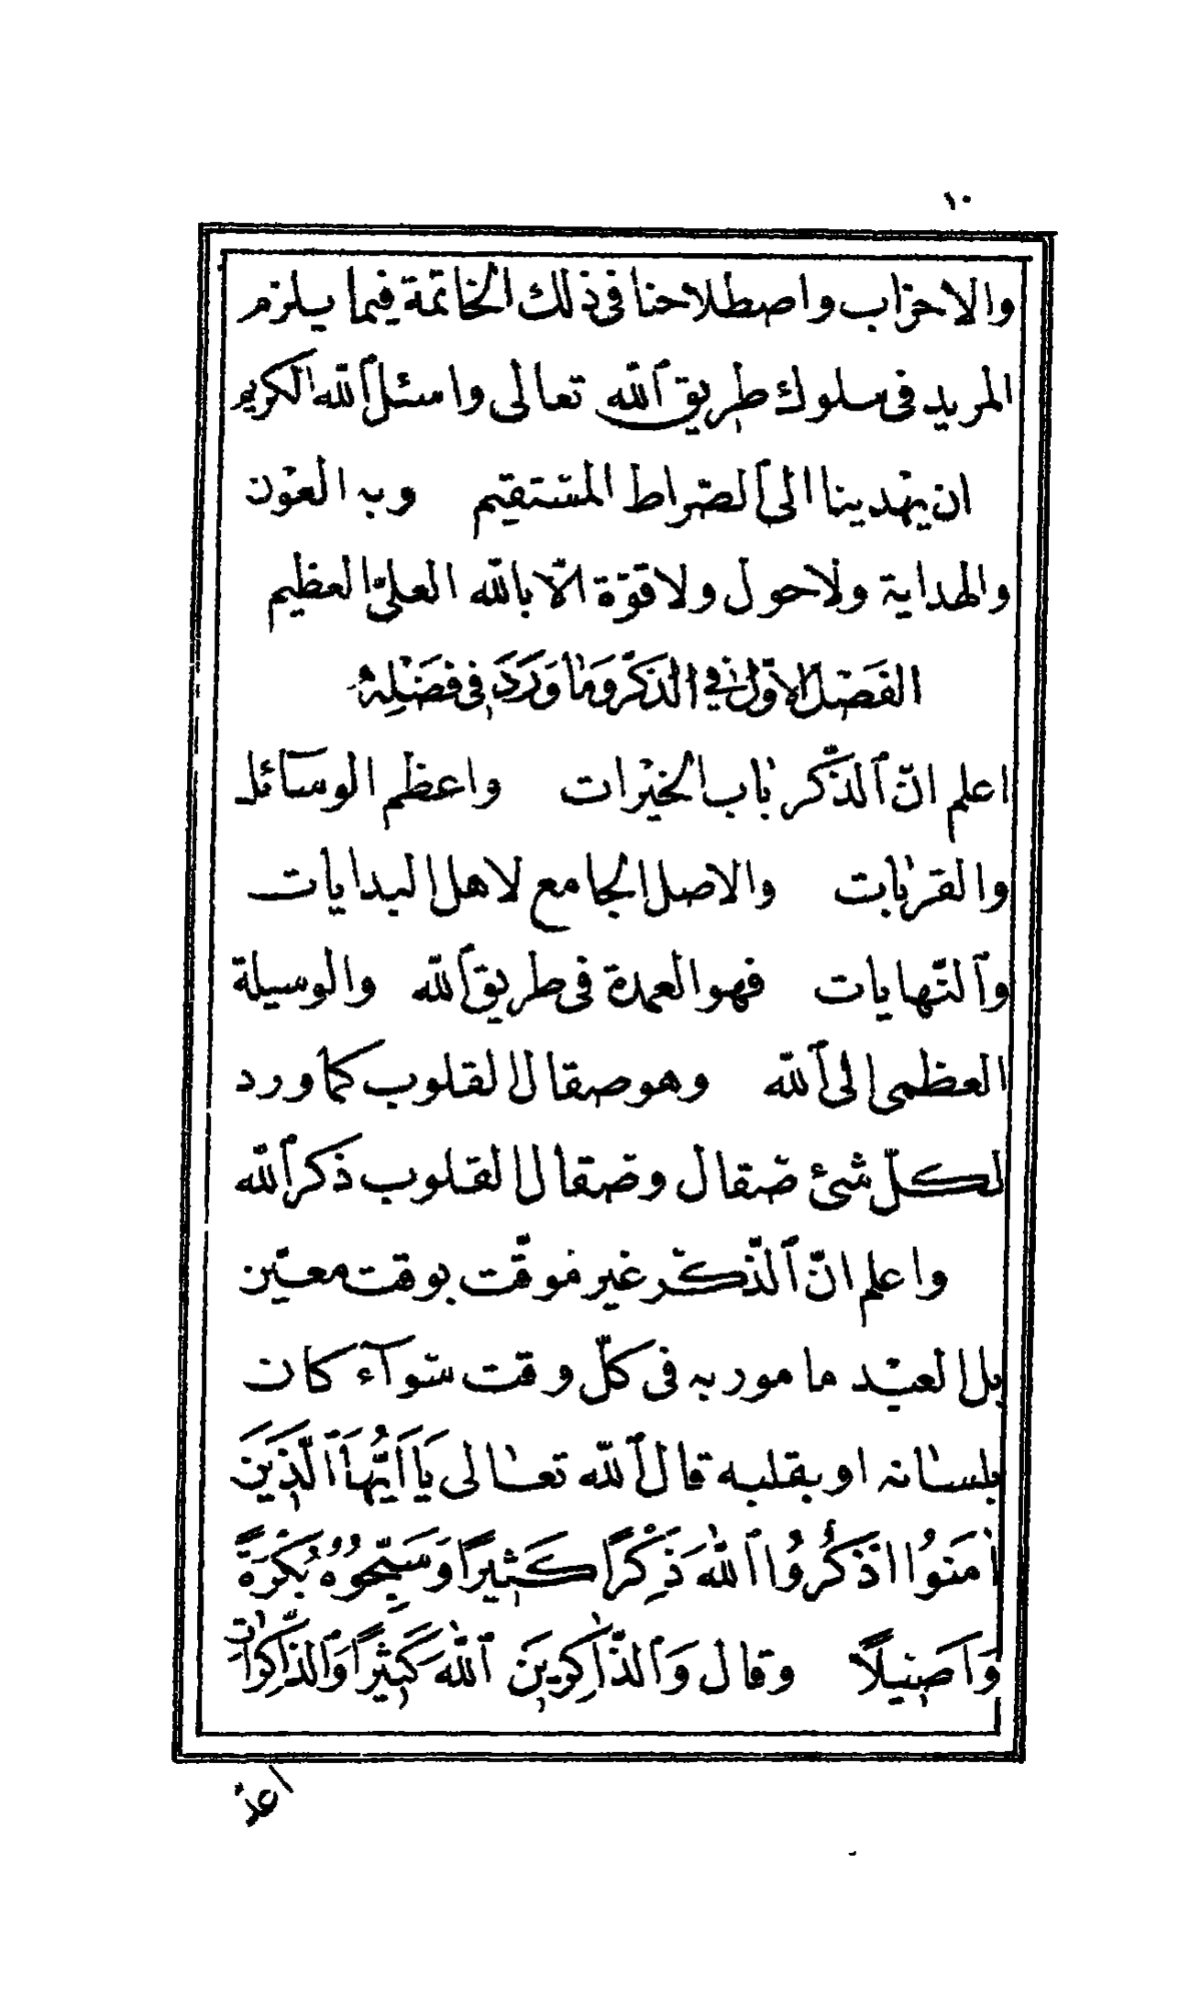 ١٠
والاحزاب واصطلاحنا فى ذلك الخاتمة فيما يلزم
المريد فى سلوك طريق ٱللّه تعالى واسئل ٱللّه الكريم
ان يهدينا الى ٱلصّراط المستقيم وبه العون
والهداية ولاحول ولا قوّة الّا باللّه العلىّ العظيم
الفَصْل الاوّل فى الذكْر وَمٰا وَرَدَ فى فضْلِهِ
اعلم انّ ٱلذّكر بٰاب الخيْرات واعظم الوسآئل
والقربٰات والاصل الجامع لاهل البدايات
وٱلنّهايات فهو العمدة فى طريق ٱللّه والوسيلة
العظمى الى ٱللّه وهو صقال القلوب كما ورد
لكلّ شئ صقال وصقال القلوب ذكر ٱللّه
واعلم انّ ٱلذّكر غير موقّت بوقت معيّن
بل العبْد مامور به فى كلّ وقت سوآء كان
بلسٰانه او بقلبه قال ٱللّه تعالى يَا اَيُّهَا ٱلَّذِينَ
اٰمَنوُا اذْكُرُوا ٱللّٰهَ ذِكْرًا كَثِيرًا وَسَبِّحُوُهُ بُكْرَةً
وَاَصِيلًا وقال وَٱلذّٰاكِرِينَ ٱللّٰهَ كَثِيرًا وَٱلذّٰاكِرٰاتِ
اعدّ